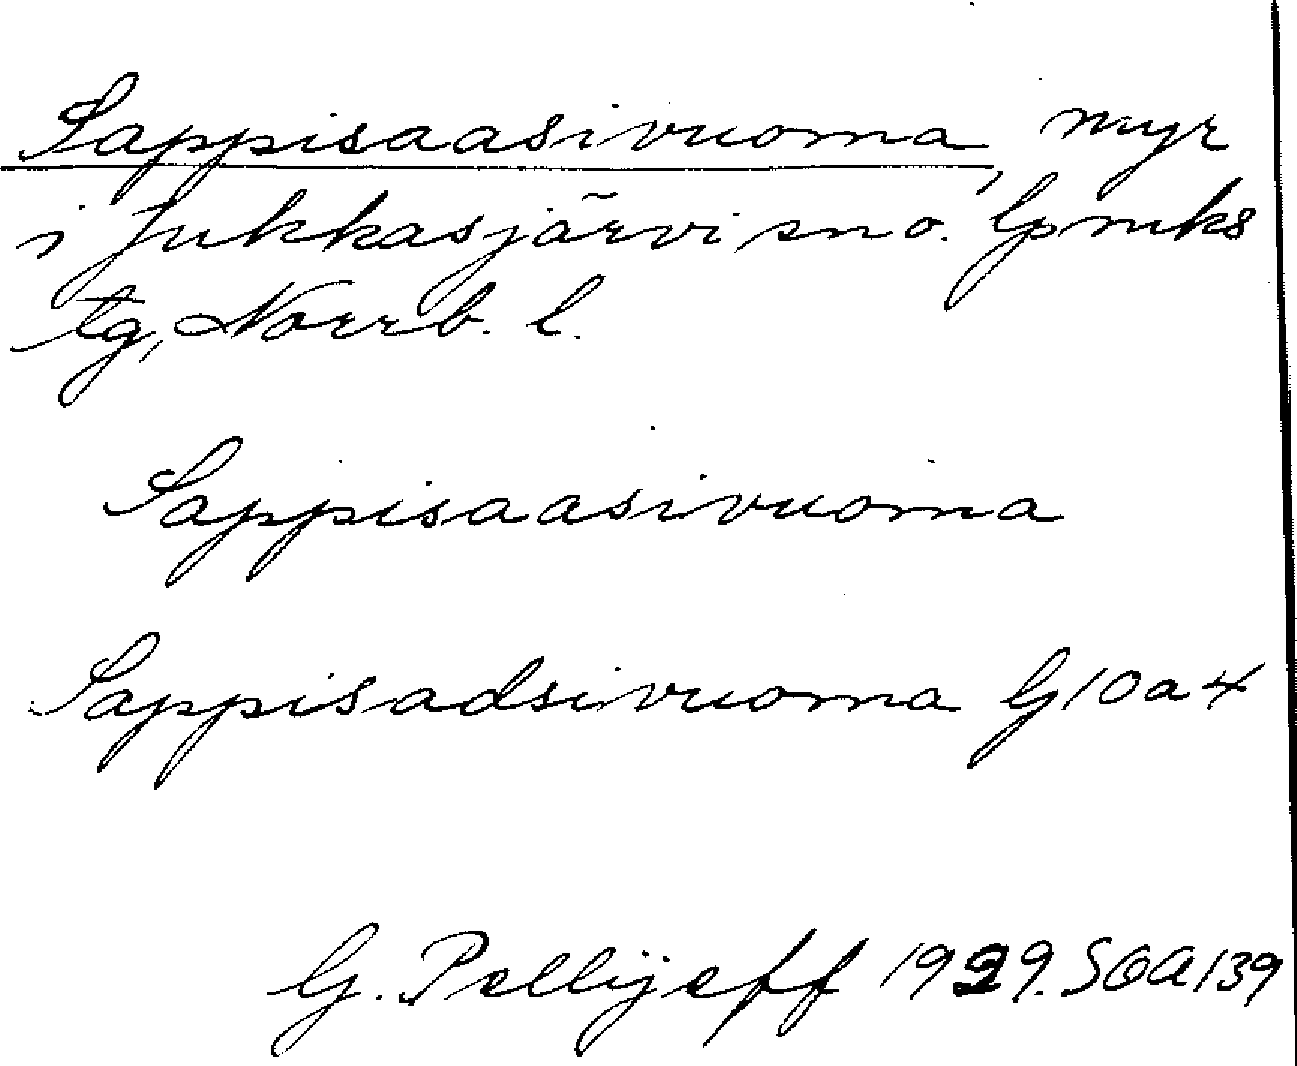 Sappisaasivuoma, myr
i Jukkasjärvi sn o. Gpmks
tg, Norrb. l.
Sappisaasivuoma
Sappisadsivuoma G10a4
G. Pellijeff 1929. SOA139